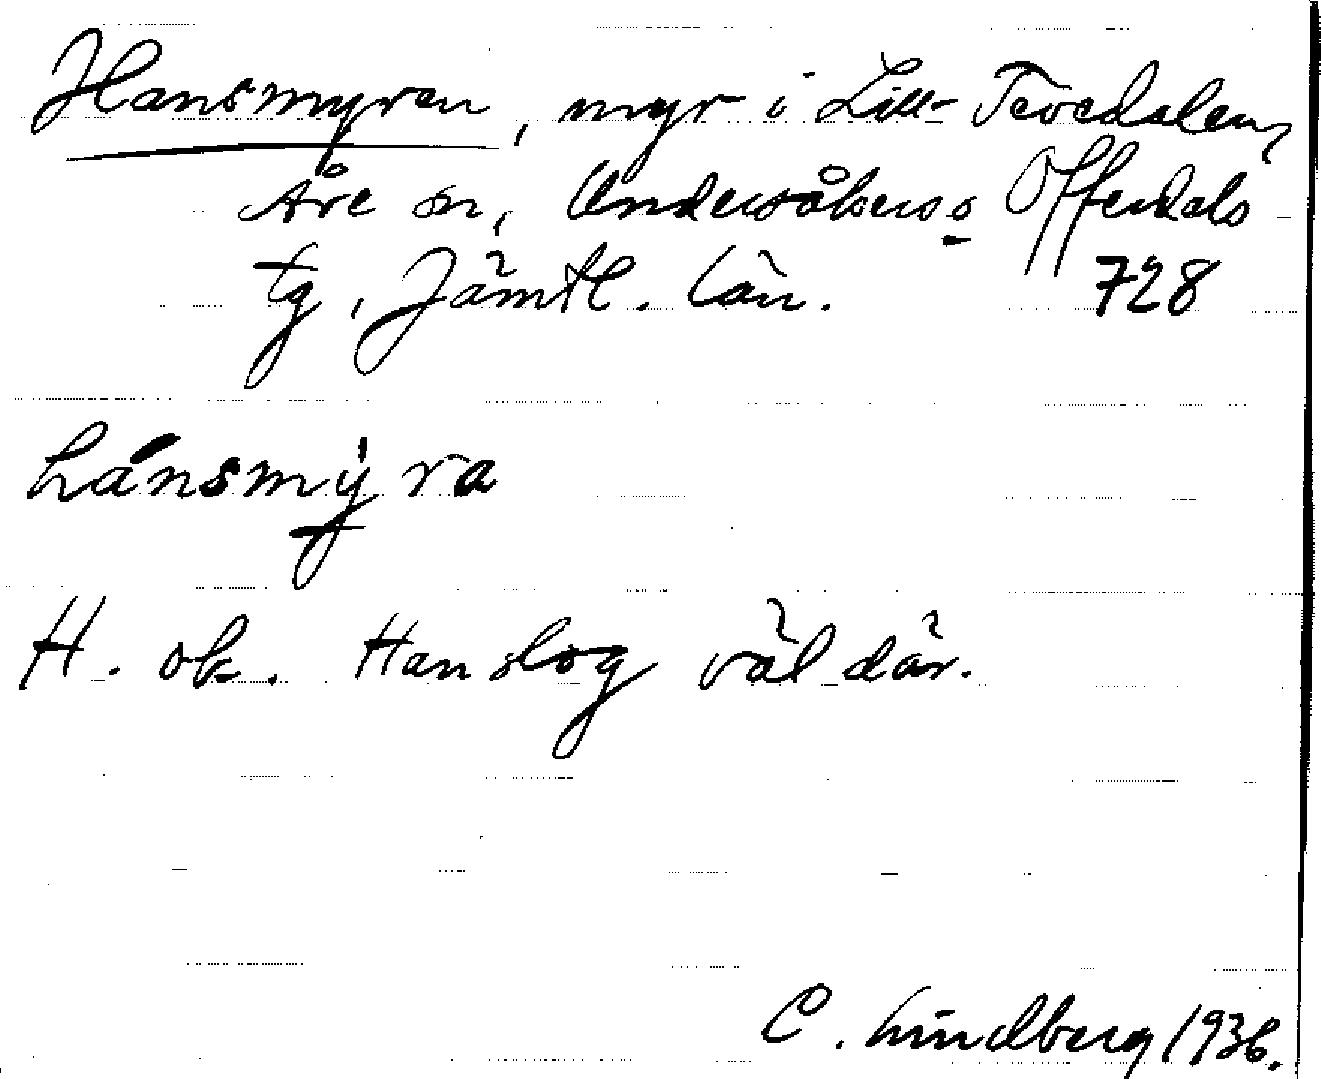 Hansmyren, myr i Lill-Tevedalen,
Åre sn, Undersåkers o Offerdals
tg, Jämtl. län. 728
hánsmýra
H. ok. Han slog väl där.
C. Lindberg 1936.